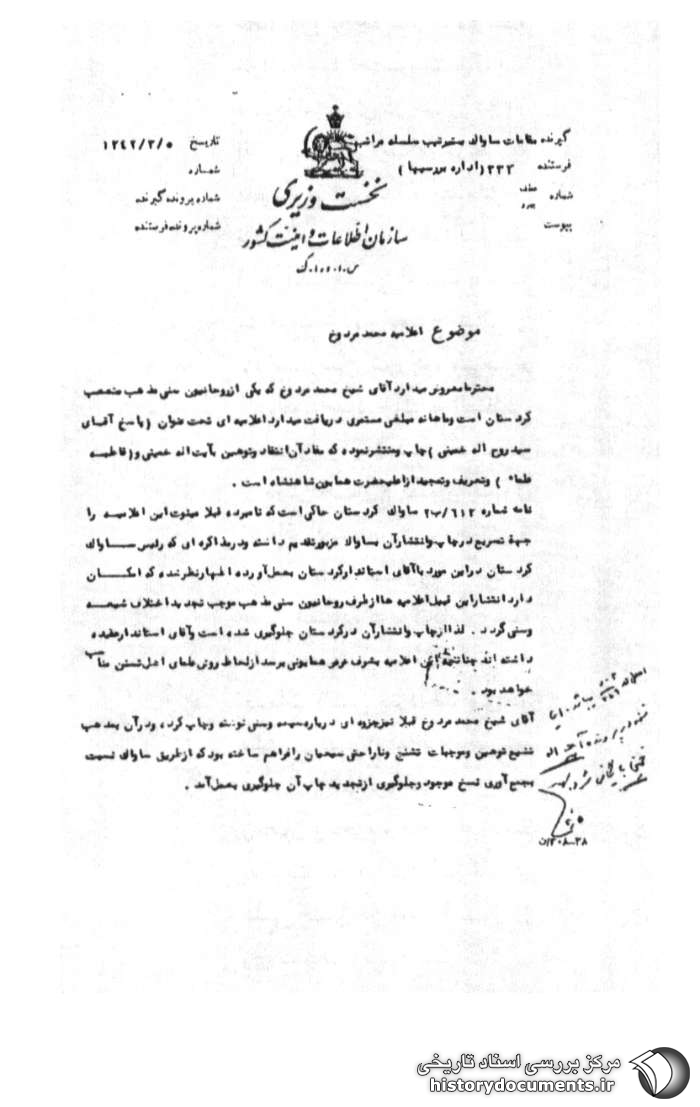 گیرنده مقامات ساواک بترتیب سلسله مراتب
فرستنده ۳۳۳ (اداره بررسیها)
شماره
عطف
پیرو
پیوست
تاریخ ۱۳۴۲/۳/۵
شماره
شماره پرونده گیرنده
شماره پرونده فرستنده
نخست وزیری
سازمان اطلاعات و امنیت کشور
س.ا.و.ا.ک
موضوع اعلامیه محمد مردوخ
محترما معروض میدارد آقای شیخ محمد مردوخ که یکی از روحانیون سنی مذهب متعصب
کردستان است و ماهانه مبلغی مستمری دریافت میدارد اعلامیه ای تحت عنوان (پاسخ آقای
سید روح اله خمینی) چاپ و منتشر نموده که مفاد آن انتقاد و توهین بآیت اله خمینی و (فاطمیه
علماء) و تعریف و تمجید از اعلیحضرت همایون شاهنشاه است .
نامه شماره ۶۱۲/ب۲ ساواک کردستان حاکی است که نامبرده قبلا مینوت این اعلامیه را
جهة تسریع در چاپ و انتشار آن بساواک مزبور تقدیم داشته و در مذاکره ای که رئیس ساواک
کردستان در این مورد با آقای استاندار کردستان بعمل آورده اظهار نظر شده که امکان
دارد انتشار این قبیل اعلامیه ها از طرف روحانیون سنی مذهب موجب تجدید اختلاف شیعه
و سنی گردد . لذا از چاپ و انتشار آن در کردستان جلوگیری شده است و آقای استاندار عقیده
داشته اند چنانچه این اعلامیه بشرف عرض همایونی برسد از لحاظ روش علمای اهل تسنن مناسب
خواهد بود .
آقای شیخ محمد مردوخ قبلا نیز جزوه ای درباره شیعه و سنی نوشته و چاپ کرد، و در آن بمذهب
تشیع توهین و موجبات تشنج و ناراحتی شیعیان را فراهم ساخته بود که از طریق ساواک نسبت
بجمع آوری نسخ موجود و جلوگیری از تجدید چاپ آن جلوگیری بعمل آمد .
مرکز بررسی اسناد تاریخی
historydocuments.ir